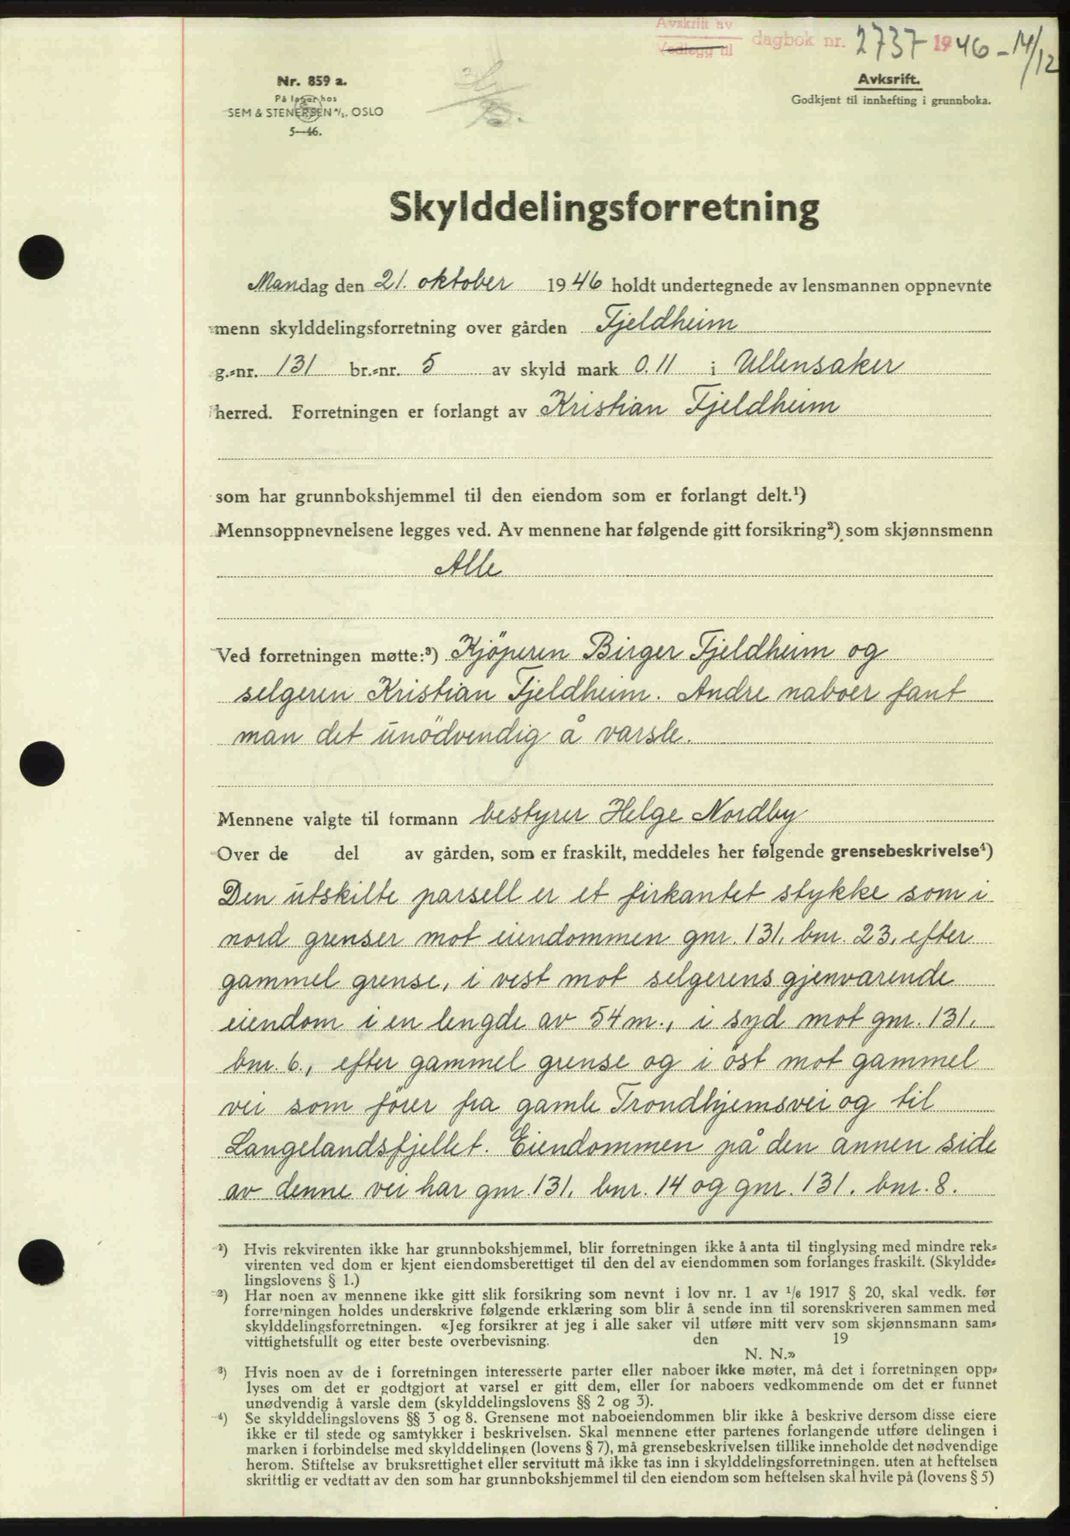 Avskrift av
Vedlegg til
dagbok nr. 2737 1946 - 14/12
Nr. 859 a.
På lager hos
SEM & STENERSEN A/S. OSLO
5—46.
Avkskrift.
Godkjent til innhefting i grunnboka.
Skylddelingsforretning
Mandag den 21. oktober 1946 holdt undertegnede av lensmannen oppnevnte
menn skylddelingsforretning over gården Fjeldheim
g.-nr. 131 br.-nr. 5 av skyld mark 0.11 i Ullensaker
herred. Forretningen er forlangt av Kristian Fjeldheim
som har grunnbokshjemmel til den eiendom som er forlangt delt.¹)
Mennsoppnevnelsene legges ved. Av mennene har følgende gitt forsikring²) som skjønnsmenn
Alle
Ved forretningen møtte:³) Kjöperen Birger Fjeldheim og
selgeren Kristian Fjeldheim. Andre naboer fant
man det unödvendig å varsle.
Mennene valgte til formann bestyrer Helge Nordby
Over de del av gården, som er fraskilt, meddeles her følgende grensebeskrivelse⁴)
Den utskilte parsell er et firkantet stykke som i
nord grenser mot eiendommen gnr. 131, bnr. 23, efter
gammel grense, i vest mot selgerens gjenværende
eiendom i en lengde av 54 m., i syd mot gnr. 131.
bnr. 6., efter gammel grense og i öst mot gammel
vei som förer fra gamle Trondhjemsvei og til
Langelandsfjellet. Eiendommen på den annen side
av denne vei har gnr. 131. bnr. 14 og gnr. 131. bnr. 8.
¹) Hvis rekvirenten ikke har grunnbokshjemmel, blir forretningen ikke å anta til tinglysing med mindre rek-
virenten ved dom er kjent eiendomsberettiget til den del av eiendommen som forlanges fraskilt. (Skyldde-
lingslovens § 1.)
²) Har noen av mennene ikke gitt slik forsikring som nevnt i lov nr. 1 av 1/6 1917 § 20, skal vedk. før
forretningen holdes underskrive følgende erklæring som blir å sende inn til sorenskriveren sammen med
skylddelingsforretningen. «Jeg forsikrer at jeg i alle saker vil utføre mitt verv som skjønnsmann sam-
vittighetsfullt og etter beste overbevisning. den 19
N. N.»
³) Hvis noen av de i forretningen interesserte parter eller naboer ikke møter, må det i forretningen opp-
lyses om det er godtgjort at varsel er gitt dem, eller for naboers vedkommende om det er funnet
unødvendig å varsle dem (skylddelingslovens §§ 2 og 3).
⁴) Se skylddelingslovens §§ 3 og 8. Grensene mot naboeiendommen blir ikke å beskrive dersom disse eiere
ikke er til stede og samtykker i beskrivelsen. Skal mennene etter partenes forlangende utføre delingen i
marken i forbindelse med skylddelingen (lovens § 7), må grensebeskrivelsen tillike inneholde det nødvendige
herom. Stiftelse av bruksrettighet eller servitutt må ikke tas inn i skylddelingsforretningen, uten at heftelsen
skrittlig er vedtatt av den som har grunnbokshjemmel til den eiendom som heftelsen skal hvile på (lovens § 5)